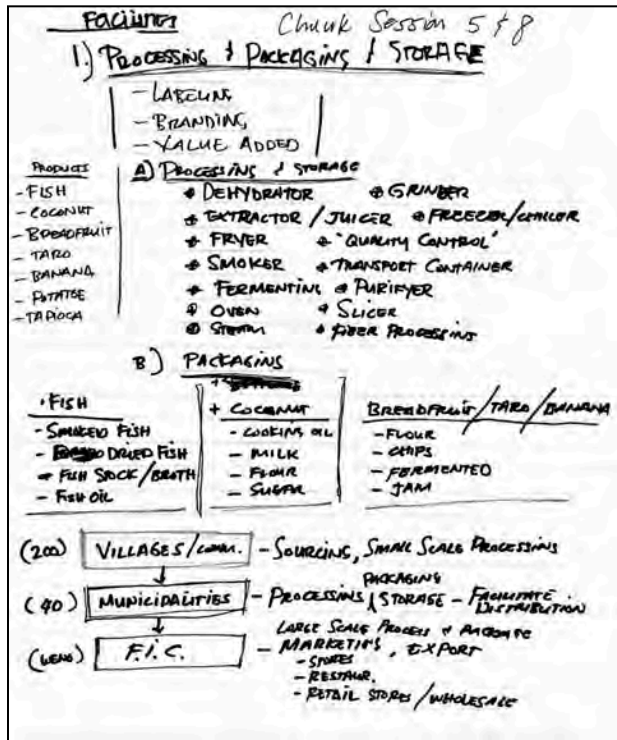 Facilities
Chuuk Session 5 & 8
1.) PROCESSING & PACKAGING & STORAGE
- LABELING
- BRANDING
- VALUE ADDED
PRODUCTS
- FISH
- COCONUT
- BREADFRUIT
- TARO
- BANANA
- POTATOE
- TAPIOCA
A) PROCESSING & STORAGE
DEHYDRATOR
GRINDER
EXTRACTOR / JUICER
FREEZER/CHILLER
FRYER
"QUALITY CONTROL"
SMOKER
TRANSPORT CONTAINER
FERMENTING
PURIFYER
OVEN
SLICER
STEAM
FIBER PROCESSING
B) PACKAGING
• FISH
- SMOKED FISH
- DRIED FISH
- FISH STOCK / BROTH
- FISH OIL
+ COCONUT
- COOKING OIL
- MILK
- FLOUR
- SUGAR
BREADFRUIT / TARO / BANANA
- FLOUR
- CHIPS
- FERMENTED
- JAM
(200) VILLAGES/COMM. - SOURCING, SMALL SCALE PROCESSING
(40) MUNICIPALITIES - PROCESSING PACKAGING & STORAGE - FACILITATE DISTRIBUTION
(WENO) F.I.C. - LARGE SCALE PROCESS & PACKAGE
MARKETING, EXPORT
- STORES
- RESTAUR.
- RETAIL STORES / WHOLESALE